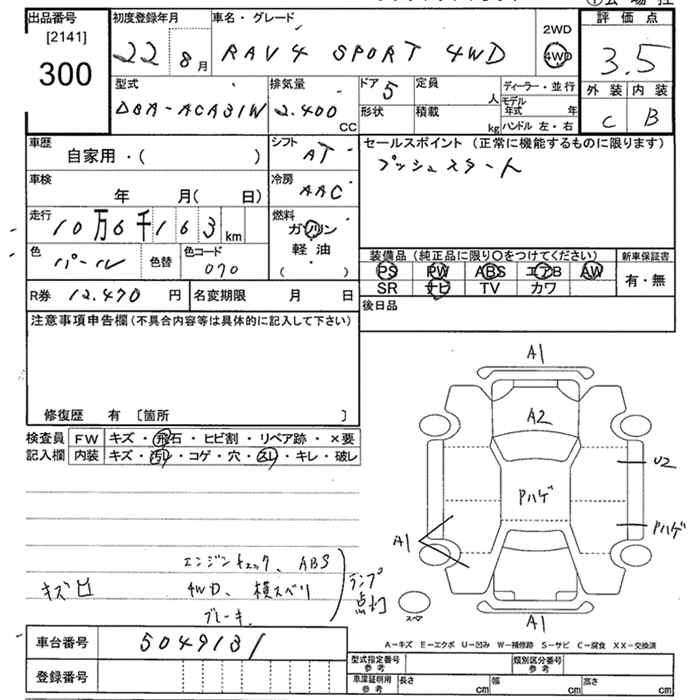 出品番号 [2141] 300
初度登録年月 22 8月
車名・グレード RAV4 SPORT 4WD
2WD 4WD
評価点 3.5
外装 C 内装 B
型式 DBA-ACA31W
排気量 2.400 CC
ドア 5
形状
定員 人
積載 kg
ディーラー・並行
モデル年式 年
ハンドル 左・右
車歴 自家用・( )
シフト AT
セールスポイント (正常に機能するものに限ります)
プッシュスタート
車検 年 月( 日)
冷房 AAC
走行 10万6千163km
燃料 ガソリン 軽油 ( )
色 パール
色替
色コード 070
装備品 (純正品に限り〇をつけてください)
PS PW ABS エアB AW
SR ナビ TV カワ
新車保証書 有・無
R券 12.470 円
名変期限 月 日
後日品
注意事項申告欄 (不具合内容等は具体的に記入して下さい)
修復歴 有 〔箇所 〕
検査員記入欄
FW キズ・飛石・ヒビ割・リペア跡・×要
内装 キズ・汚レ・コゲ・穴・スレ・キレ・破レ
A1
A2
U2
Pハゲ
Pハゲ
A1
A1
スペア
キズ凹
エンジンチェック、ABS
4WD、横スベリ
ブレーキ
ランプ点灯
車台番号 5049131
登録番号
A-キズ E-エクボ U-凹み W-補修跡 S-サビ C-腐食 XX-交換済
型式指定番号 参考
類別区分番号 参考
車庫証明用 参考
長さ cm 幅 cm 高さ cm